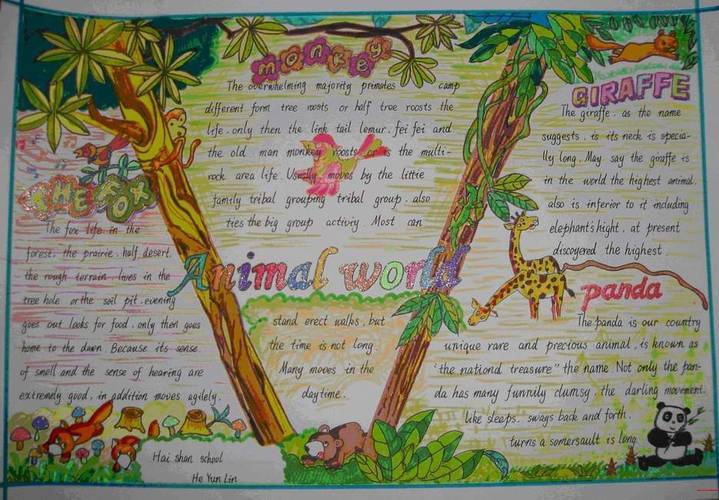 Monkey
The overwhelming majority primates camp
different form tree roosts or half tree roosts the
life. only then the link tail lemur. fei fei and
the old man monkey roosts or is the multi-
rock area life. Usually moves by the little
family tribal grouping tribal group. also
ties the big group activiy Most can
Animal world
stand erect walks, but
the time is not long.
Many moves in the
daytime.
THE FOX
The fox life in the
forest. the prairie. half desert.
the rough terrain. lives in the
tree hole or the soil pit. evening
goes out looks for food. only then goes
home to the dawn. Because its sense
of smell and the sense of hearing are
extremely good. in addition moves agilely.
Hai shan school
He Yun Lin
GIRAFFE
The giraffe. as the name
suggests. is its neck is specia-
lly long. May say the giraffe is
in the world the highest animal.
also is inferior to it including
elephant's hight. at present
discoyered the highest.
panda
The panda is our country
unique rare and precious animal. is known as
"the national treasure" the name Not only the pan-
da has many funnily clumsy. the darling movement.
like sleeps. sways back and forth.
turns a somersault is long